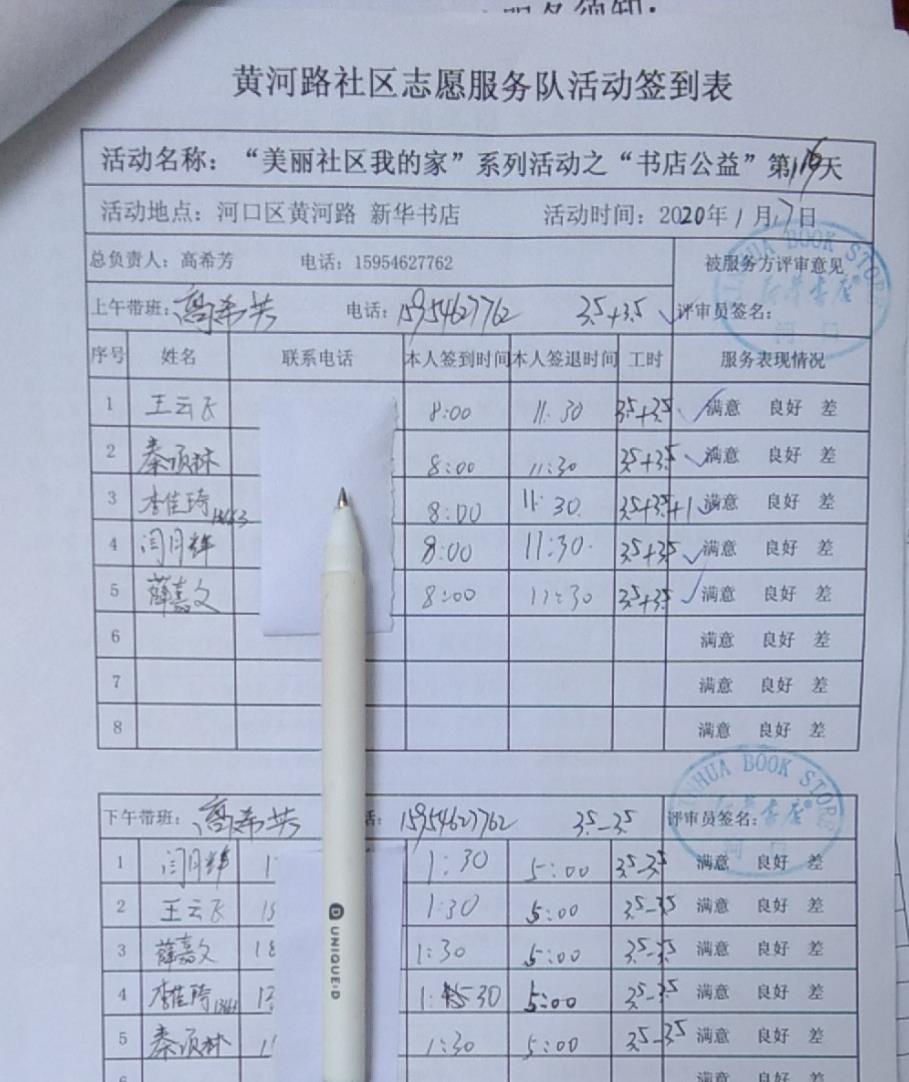 黄河路社区志愿服务队活动签到表
活动名称：“美丽社区我的家”系列活动之“书店公益”第 天
活动地点：河口区黄河路 新华书店 活动时间：2020年1月17日
总负责人：高希芳 电话：15954627762 被服务方评审意见
上午带班：高希芳 电话：15954627762 3.5+3.5 评审员签名：
序号 姓名 联系电话 本人签到时间 本人签退时间 工时 服务表现情况
1 王云飞 8:00 11:30 3.5+3.5 满意 良好 差
2 秦顷林 8:00 11:30 3.5+3.5 满意 良好 差
3 李佳琦 8:00 11:30 3.5+3.5+1 满意 良好 差
4 闫月辉 8:00 11:30 3.5+3.5 满意 良好 差
5 薛嘉文 8:00 11:30 3.5+3.5 满意 良好 差
6 满意 良好 差
7 满意 良好 差
8 满意 良好 差
XINHUA BOOK STORE
新华书店
河口
下午带班：高希芳 话：15954627762 3.5-3.5 评审员签名：
1 闫月辉 1 1:30 5:00 3.5-3.5 满意 良好 差
2 王云飞 15 1:30 5:00 3.5-3.5 满意 良好 差
3 薛嘉文 18 1:30 5:00 3.5-3.5 满意 良好 差
4 李佳琦 13 1:30 5:00 3.5-3.5 满意 良好 差
5 秦顷林 1 1:30 5:00 3.5-3.5 满意 良好 差
INHUA BOOK STORE
新华书店
河口
UNIQUE:D